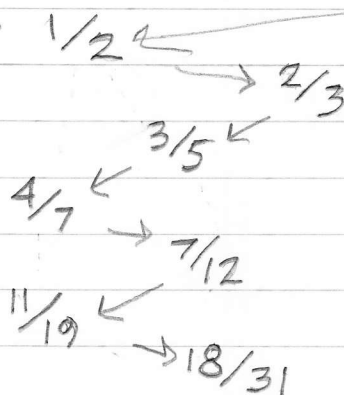 1/2
2/3
3/5
4/7
7/12
11/19
18/31